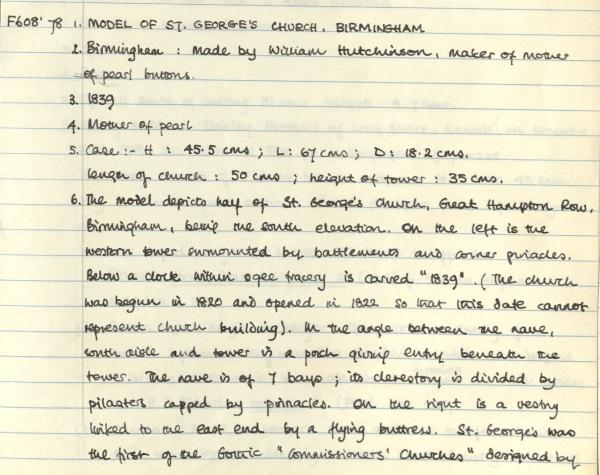 F608'78 1. MODEL OF ST. GEORGE'S CHURCH, BIRMINGHAM
2. Birmingham : made by William Hutchinson, maker of mother
of pearl buttons.
3. 1839
4. Mother of pearl
5. Case :- H : 45.5 cms ; L : 67 cms ; D : 18.2 cms.
length of church : 50 cms ; height of tower : 35 cms.
6. The model depicts half of St. George's Church, Great Hampton Row,
Birmingham, being the south elevation. On the left is the
western tower surmounted by battlements and corner pinacles.
Below a clock within ogee tracery is carved "1839". (The church
was begun in 1820 and opened in 1822 so that this date cannot
represent church building). In the angle between the nave,
south aisle and tower is a porch giving entry beneath the
tower. The nave is of 7 bays ; its clerestory is divided by
pilasters capped by pinnacles. On the right is a vestry
linked to the east end by a flying buttress. St. George's was
the first of the Gothic "Commissioners' Churches" designed by